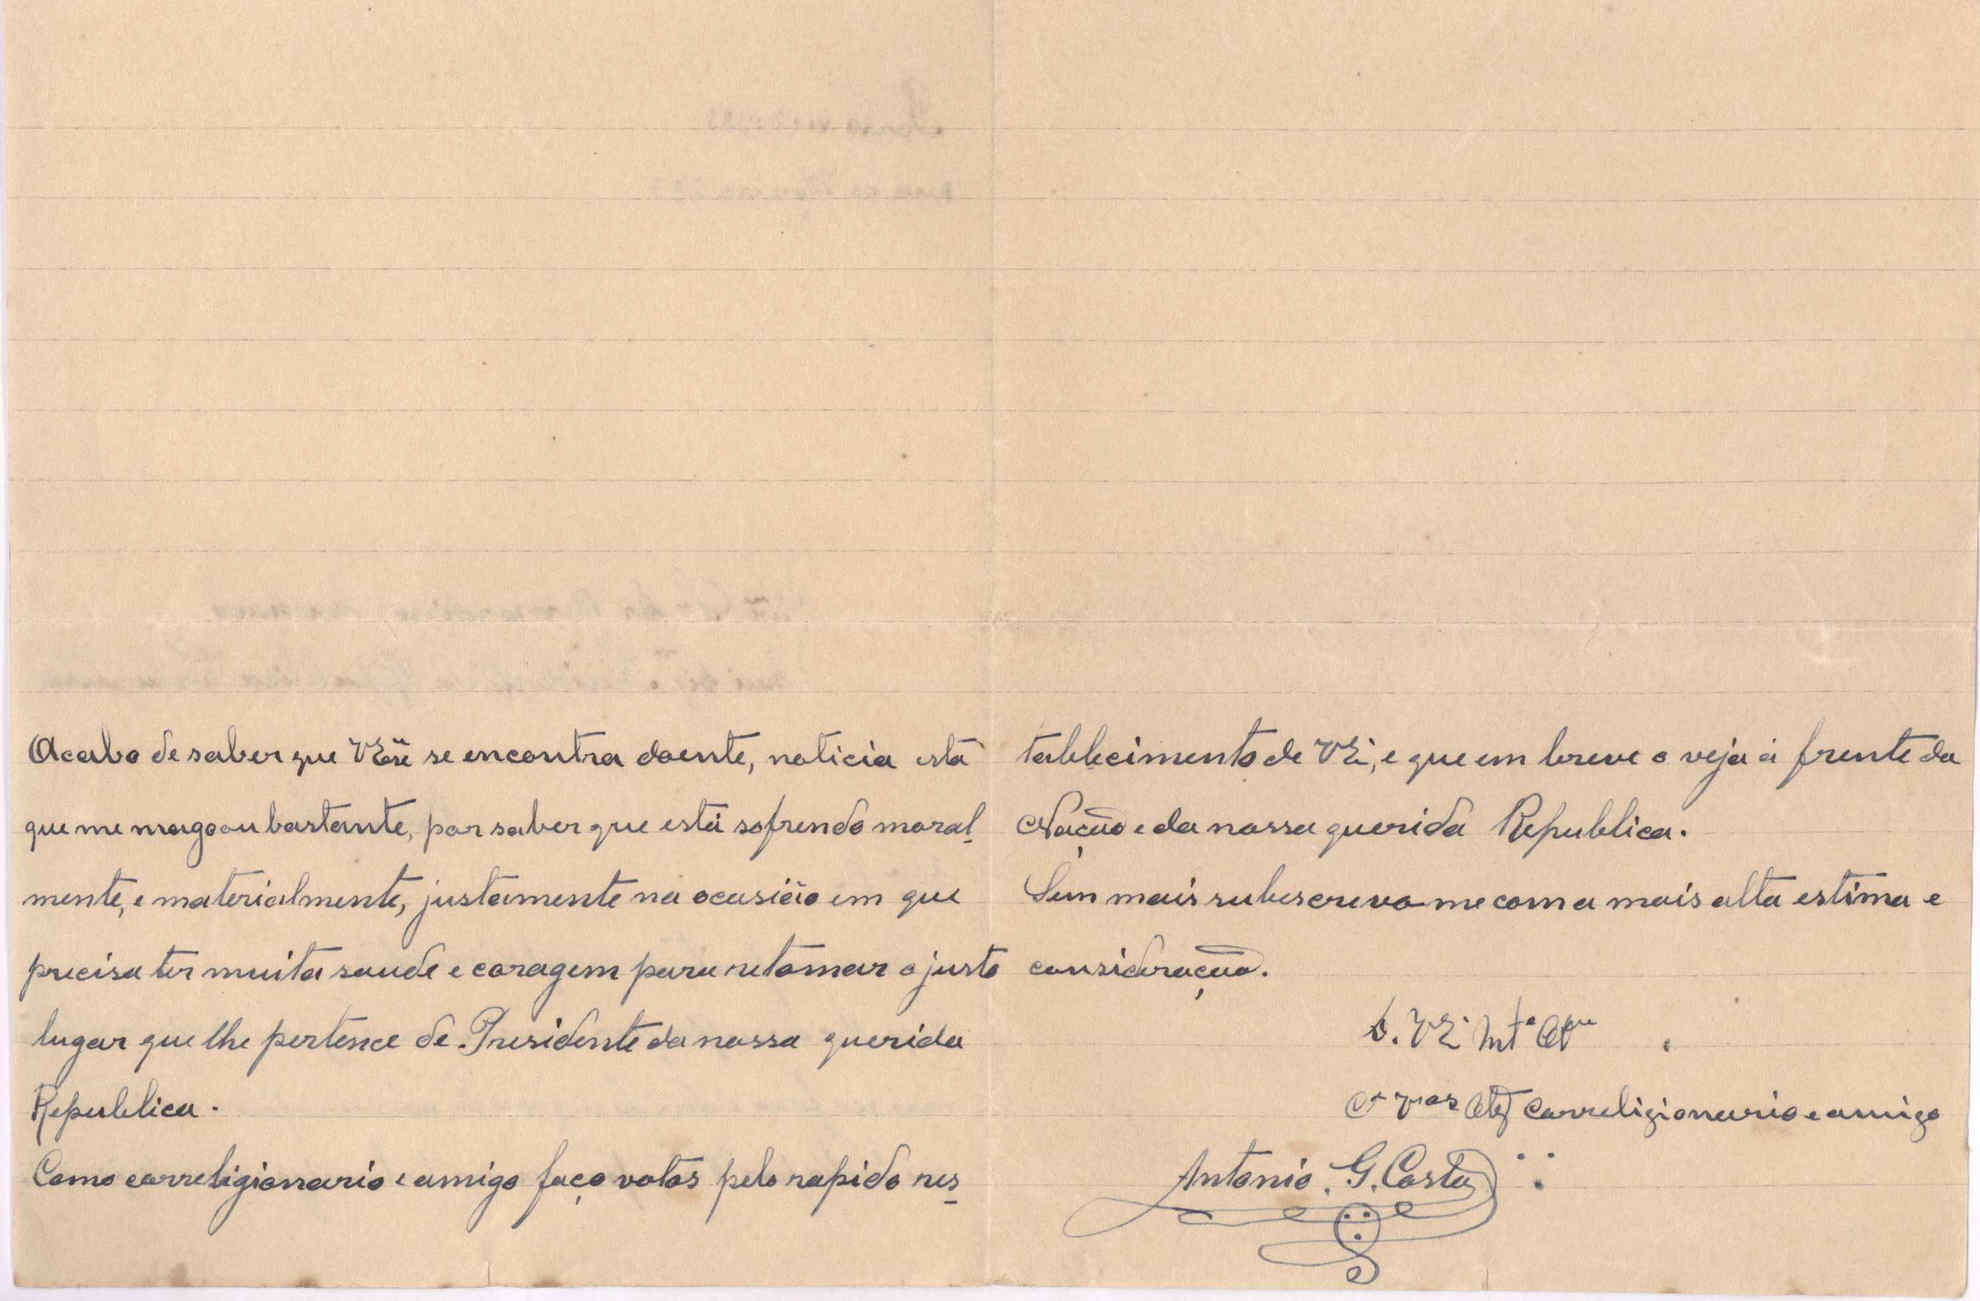 Acabo de saber que VExª se encontra doente, noticia esta
que me magoou bastante, por saber que está sofrendo moral-
mente, e materialmente, justamente na ocasião em que
precisa ter muita saude e coragem para retomar o justo
lugar que lhe pertence de Presidente da nossa querida
Republica.
Como correligionario e amigo faço votos pelo rapido res-
tablecimento de VE., e que em breve o veja á frente da
Nação e da nossa querida Republica.
Sem mais subescrevo-me com a mais alta estima e
consideração.
D. VE. Mtº
correligionario e amigo
Antonio. G. Costa